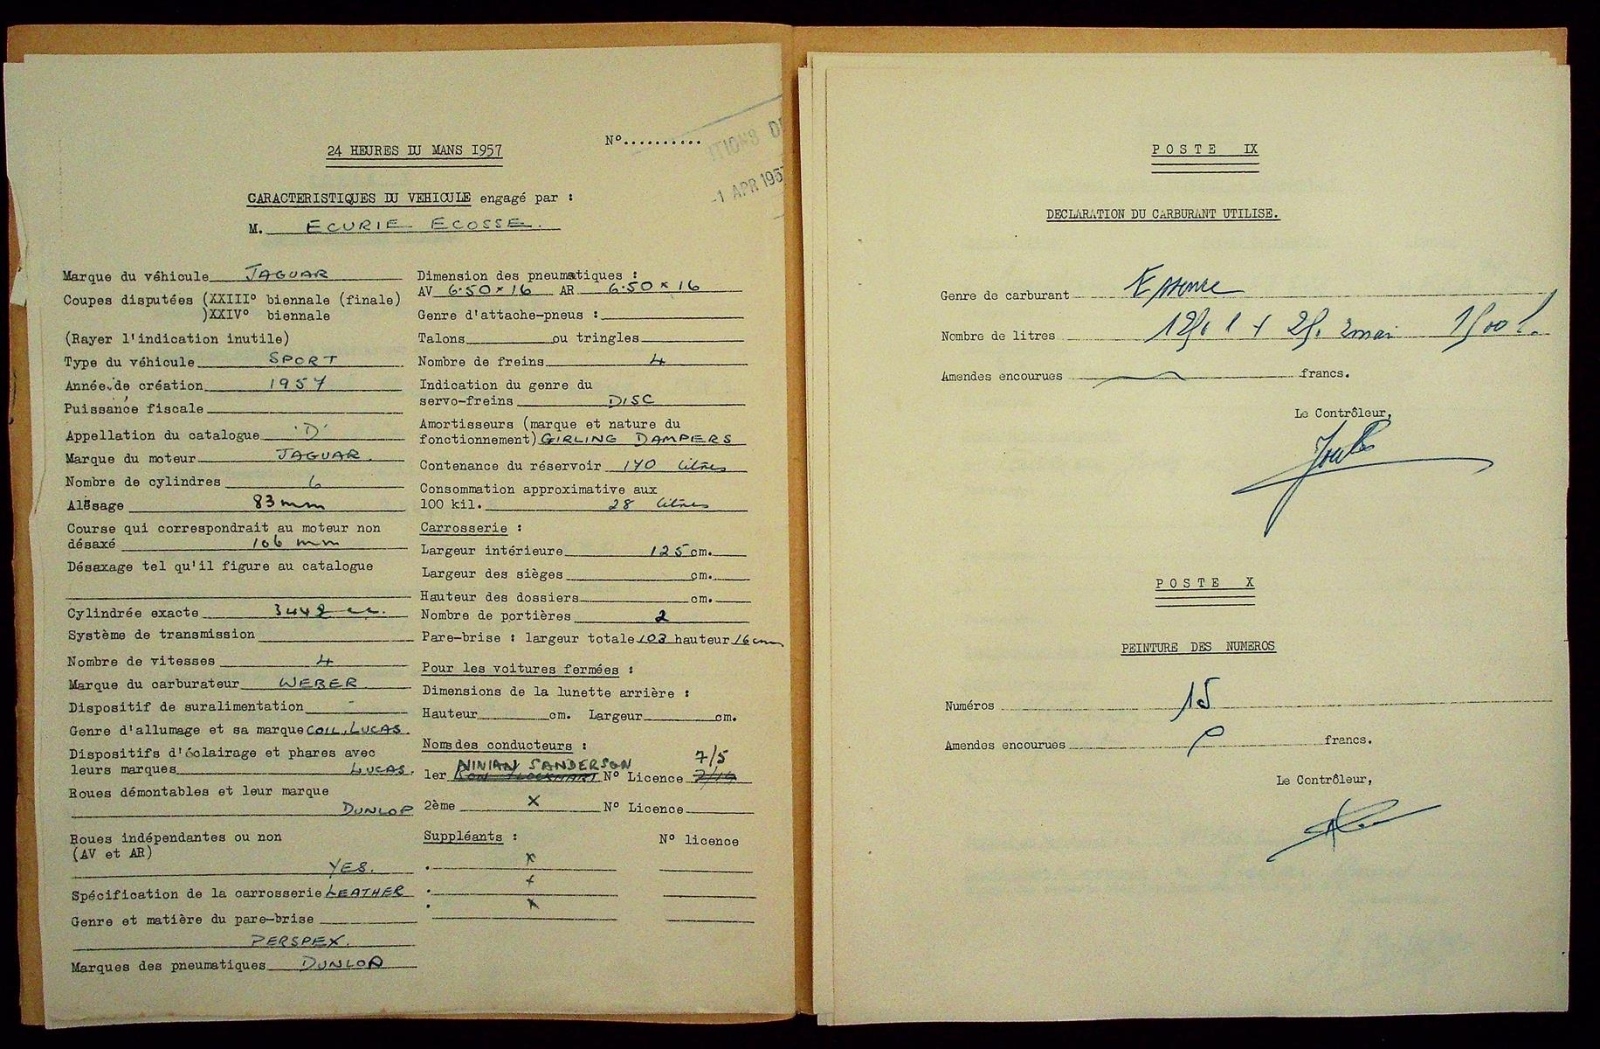 24 HEURES DU MANS 1957
N°..........
TIONS D
-1 APR 195
CARACTERISTIQUES DU VEHICULE engagé par :
M. ECURIE ECOSSE.
Marque du véhicule JAGUAR
Coupes disputées (XXIII° biennale (finale)
)XXIV° biennale
(Rayer l'indication inutile)
Type du véhicule SPORT
Année de création 1957
Puissance fiscale
Appellation du catalogue 'D'
Marque du moteur JAGUAR.
Nombre de cylindres 6
Alésage 83 mm
Course qui correspondrait au moteur non
désaxé 106 mm
Désaxage tel qu'il figure au catalogue
Cylindrée exacte 3442 cc.
Système de transmission
Nombre de vitesses 4
Marque du carburateur WEBER
Dispositif de suralimentation -
Genre d'allumage et sa marque COIL, LUCAS
Dispositifs d'éclairage et phares avec
leurs marques LUCAS.
Roues démontables et leur marque
DUNLOP
Roues indépendantes ou non
(AV et AR)
YES.
Spécification de la carrosserie LEATHER
Genre et matière du pare-brise
PERSPEX.
Marques des pneumatiques DUNLOP
Dimension des pneumatiques :
AV 6.50 x 16 AR 6.50 x 16
Genre d'attache-pneus :
Talons ou tringles
Nombre de freins 4
Indication du genre du
servo-freins DISC
Amortisseurs (marque et nature du
fonctionnement) GIRLING DAMPERS
Contenance du réservoir 170 litres
Consommation approximative aux
100 kil. 28 litres
Carrosserie :
Largeur intérieure 125 cm.
Largeur des sièges cm.
Hauteur des dossiers cm.
Nombre de portières 2
Pare-brise : largeur totale 103 hauteur 16 cm
Pour les voitures fermées :
Dimensions de la lunette arrière :
Hauteur cm. Largeur cm.
Noms des conducteurs :
NINIAN SANDERSON 7/5
1er RON FLOCKHART N° Licence
2ème X N° Licence
Suppléants : N° licence
. x
. x
. x
POSTE IX
DECLARATION DU CARBURANT UTILISE.
Genre de carburant Essence
Nombre de litres
Amendes encourues francs.
Le Contrôleur,
POSTE X
PEINTURE DES NUMEROS
Numéros 15
Amendes encourues francs.
Le Contrôleur,